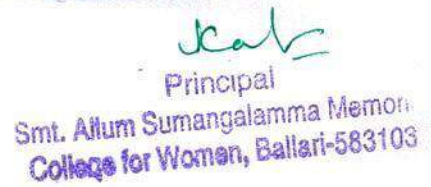 Principal
Smt. Allum Sumangalamma Memori
College for Women, Ballari-583103